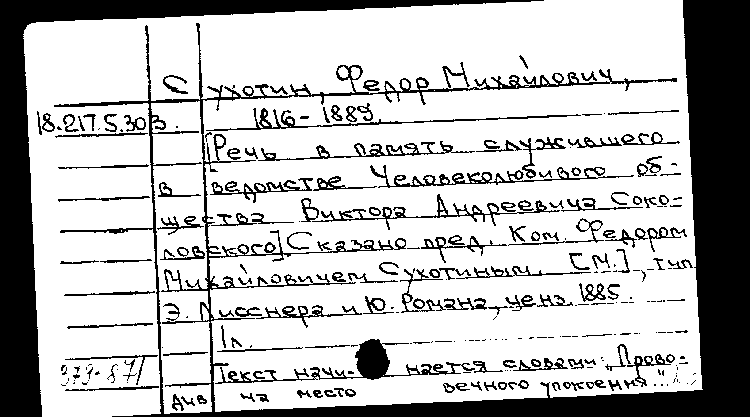 Сухотин, Федор Михайлович,
18.217.5.30 3. 1816-1889.
[Речь в память служившего
в ведомстве Человеколюбивого об-
щества Виктора Андреевича Соко-
ловского]. Сказано пред. Ком. Федором
Михайловичем Сухотиным. [М.], тип.
Э. Лисснера и Ю. Романа, ценз. 1885.
1л.
379-871 Текст начинается словами: „Прово-
див на место вечного упокоения..."